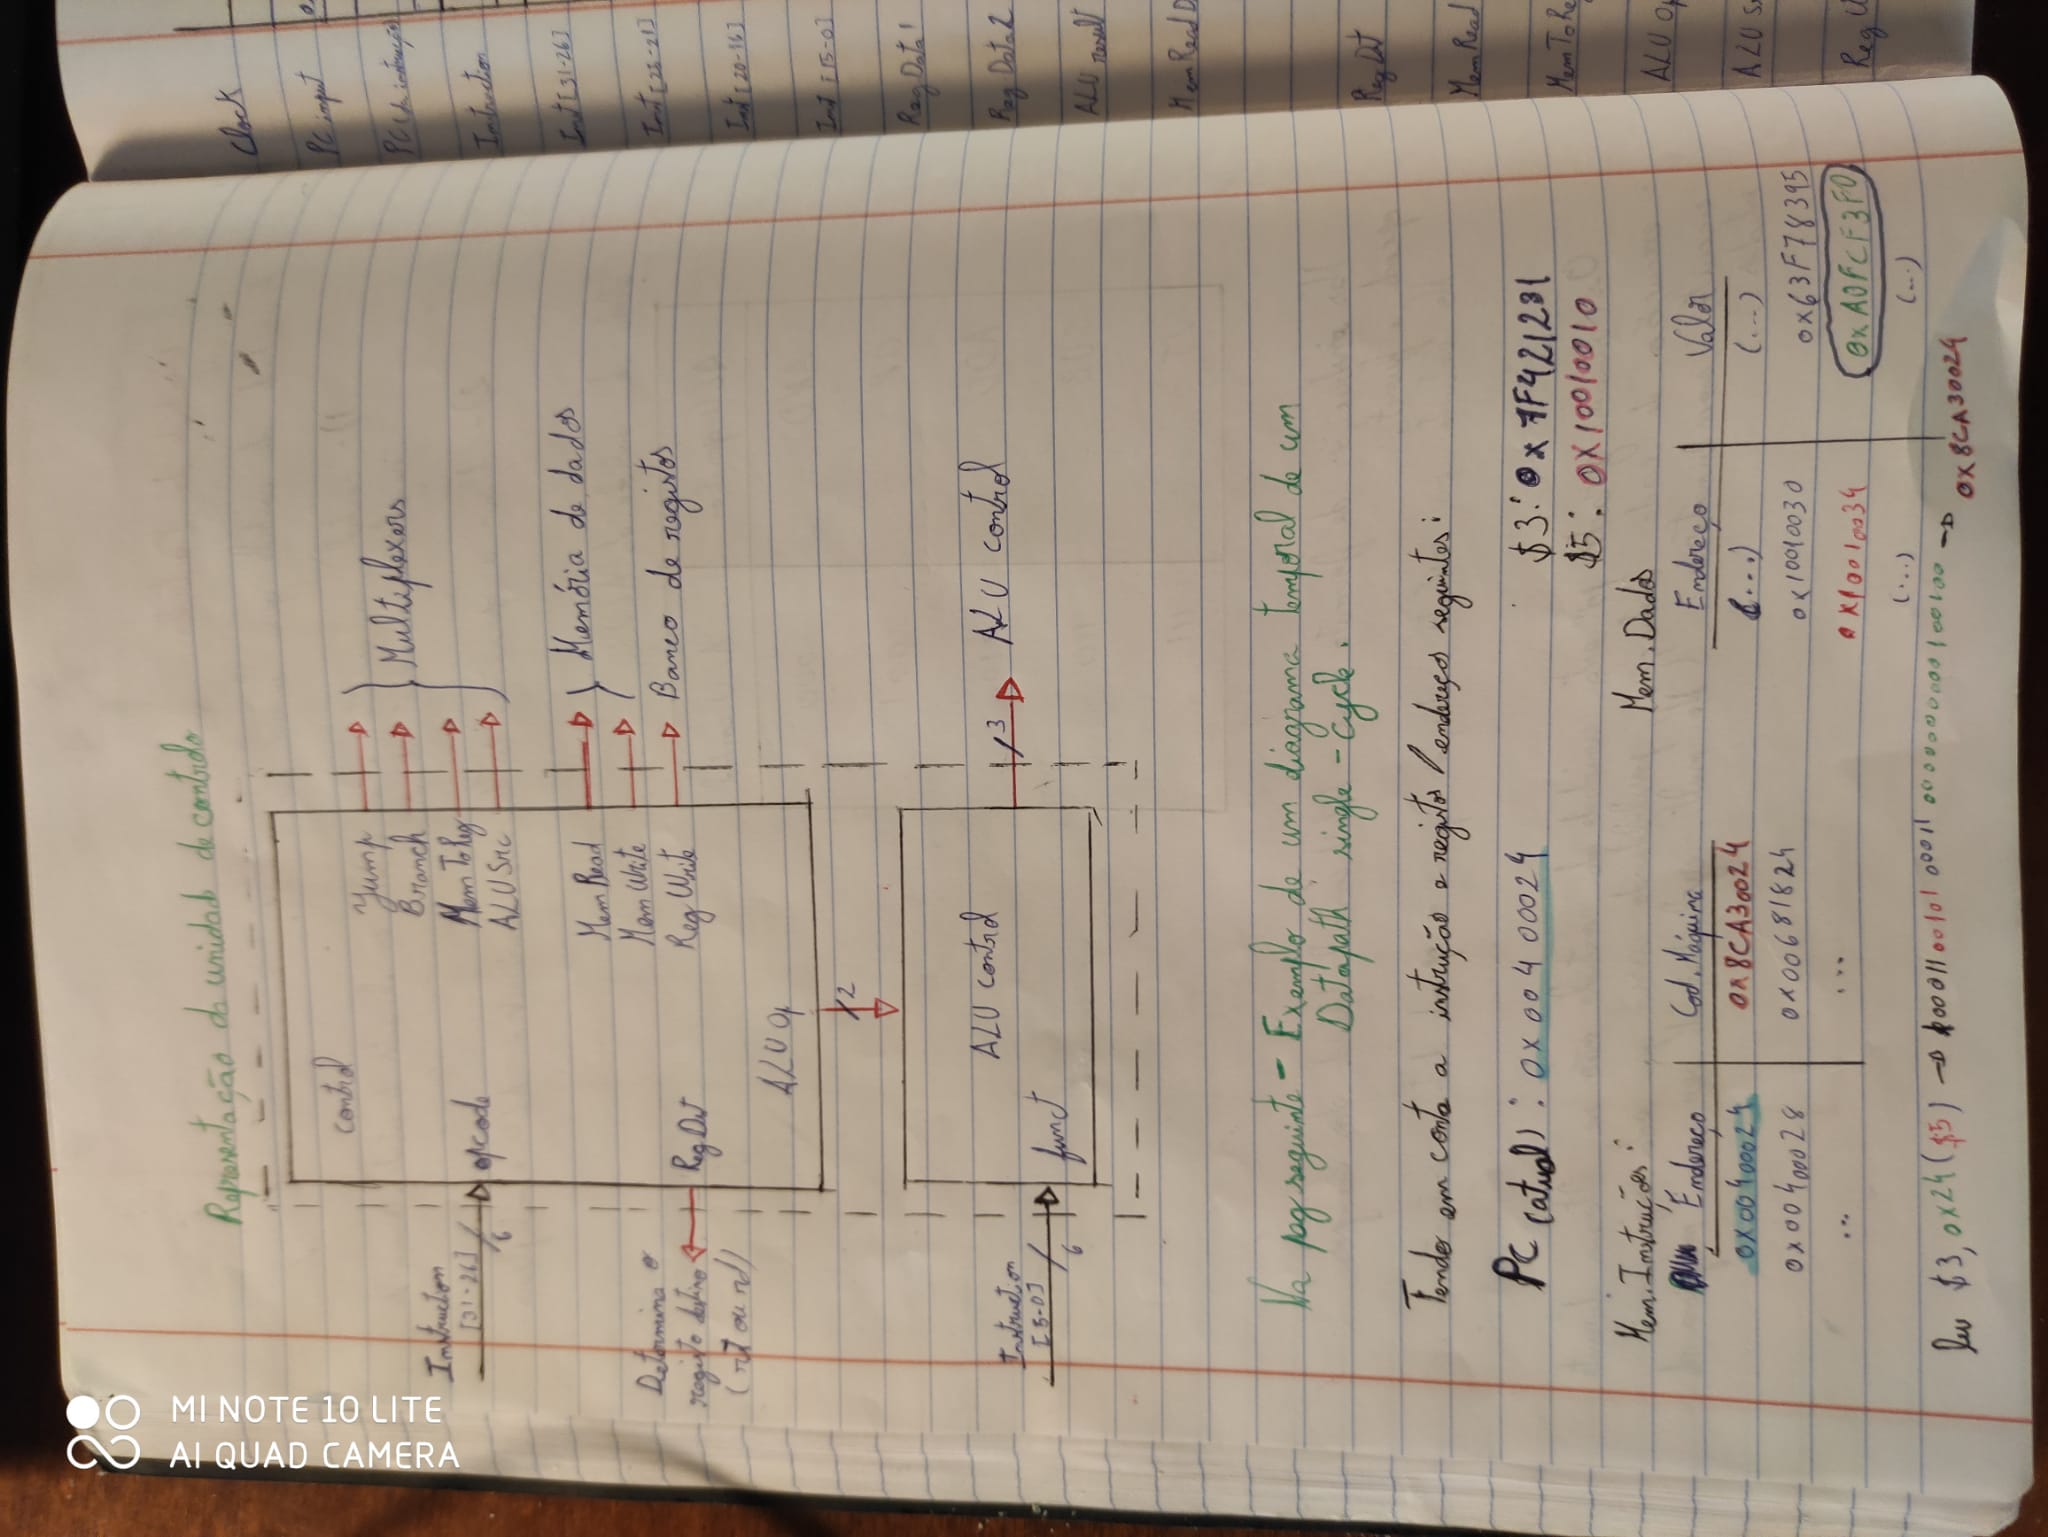 MI NOTE 10 LITE
AI QUAD CAMERA
Representação da unidade de controlo
control
Jump
Branch
MemToReg
ALUSrc
Multiplexers
Instruction
[31-26]
6
opcode
MemRead
MemWrite
Memória de dados
RegWrite
Banco de registos
Determina o
registo destino
(rt ou rd)
RegDst
ALUOp
2
ALU control
3
ALU control
Instruction
[5-0]
6
funct
Na pag seguinte - Exemplo de um diagrama temporal de um
Datapath single-cycle.
Tendo em conta a instrução e registos/endereços seguintes:
PC (atual): 0x00400024
$3: 0x7F421231
$5: 0x10010010
Mem. Instruções:
Endereço Cod. Máquina
0x00400024 0x8CA30024
0x00400028 0x00681824
... ...
Mem. Dados
Endereço Valor
(...) (...)
0x10010030 0x63F78395
0x10010034 0xA0FCF3F0
(...) (...)
lw $3, 0x24($5) → 100011 00101 00011 0000000000100100 → 0x8CA30024
Clock
PC input
PC (da instrução)
Instruction
Inst[31-26]
Inst[25-21]
Inst[20-16]
Inst[15-0]
RegData1
RegData2
ALU result
MemReadD
RegDst
MemRead
MemToRe
ALU Op
ALU S
Reg